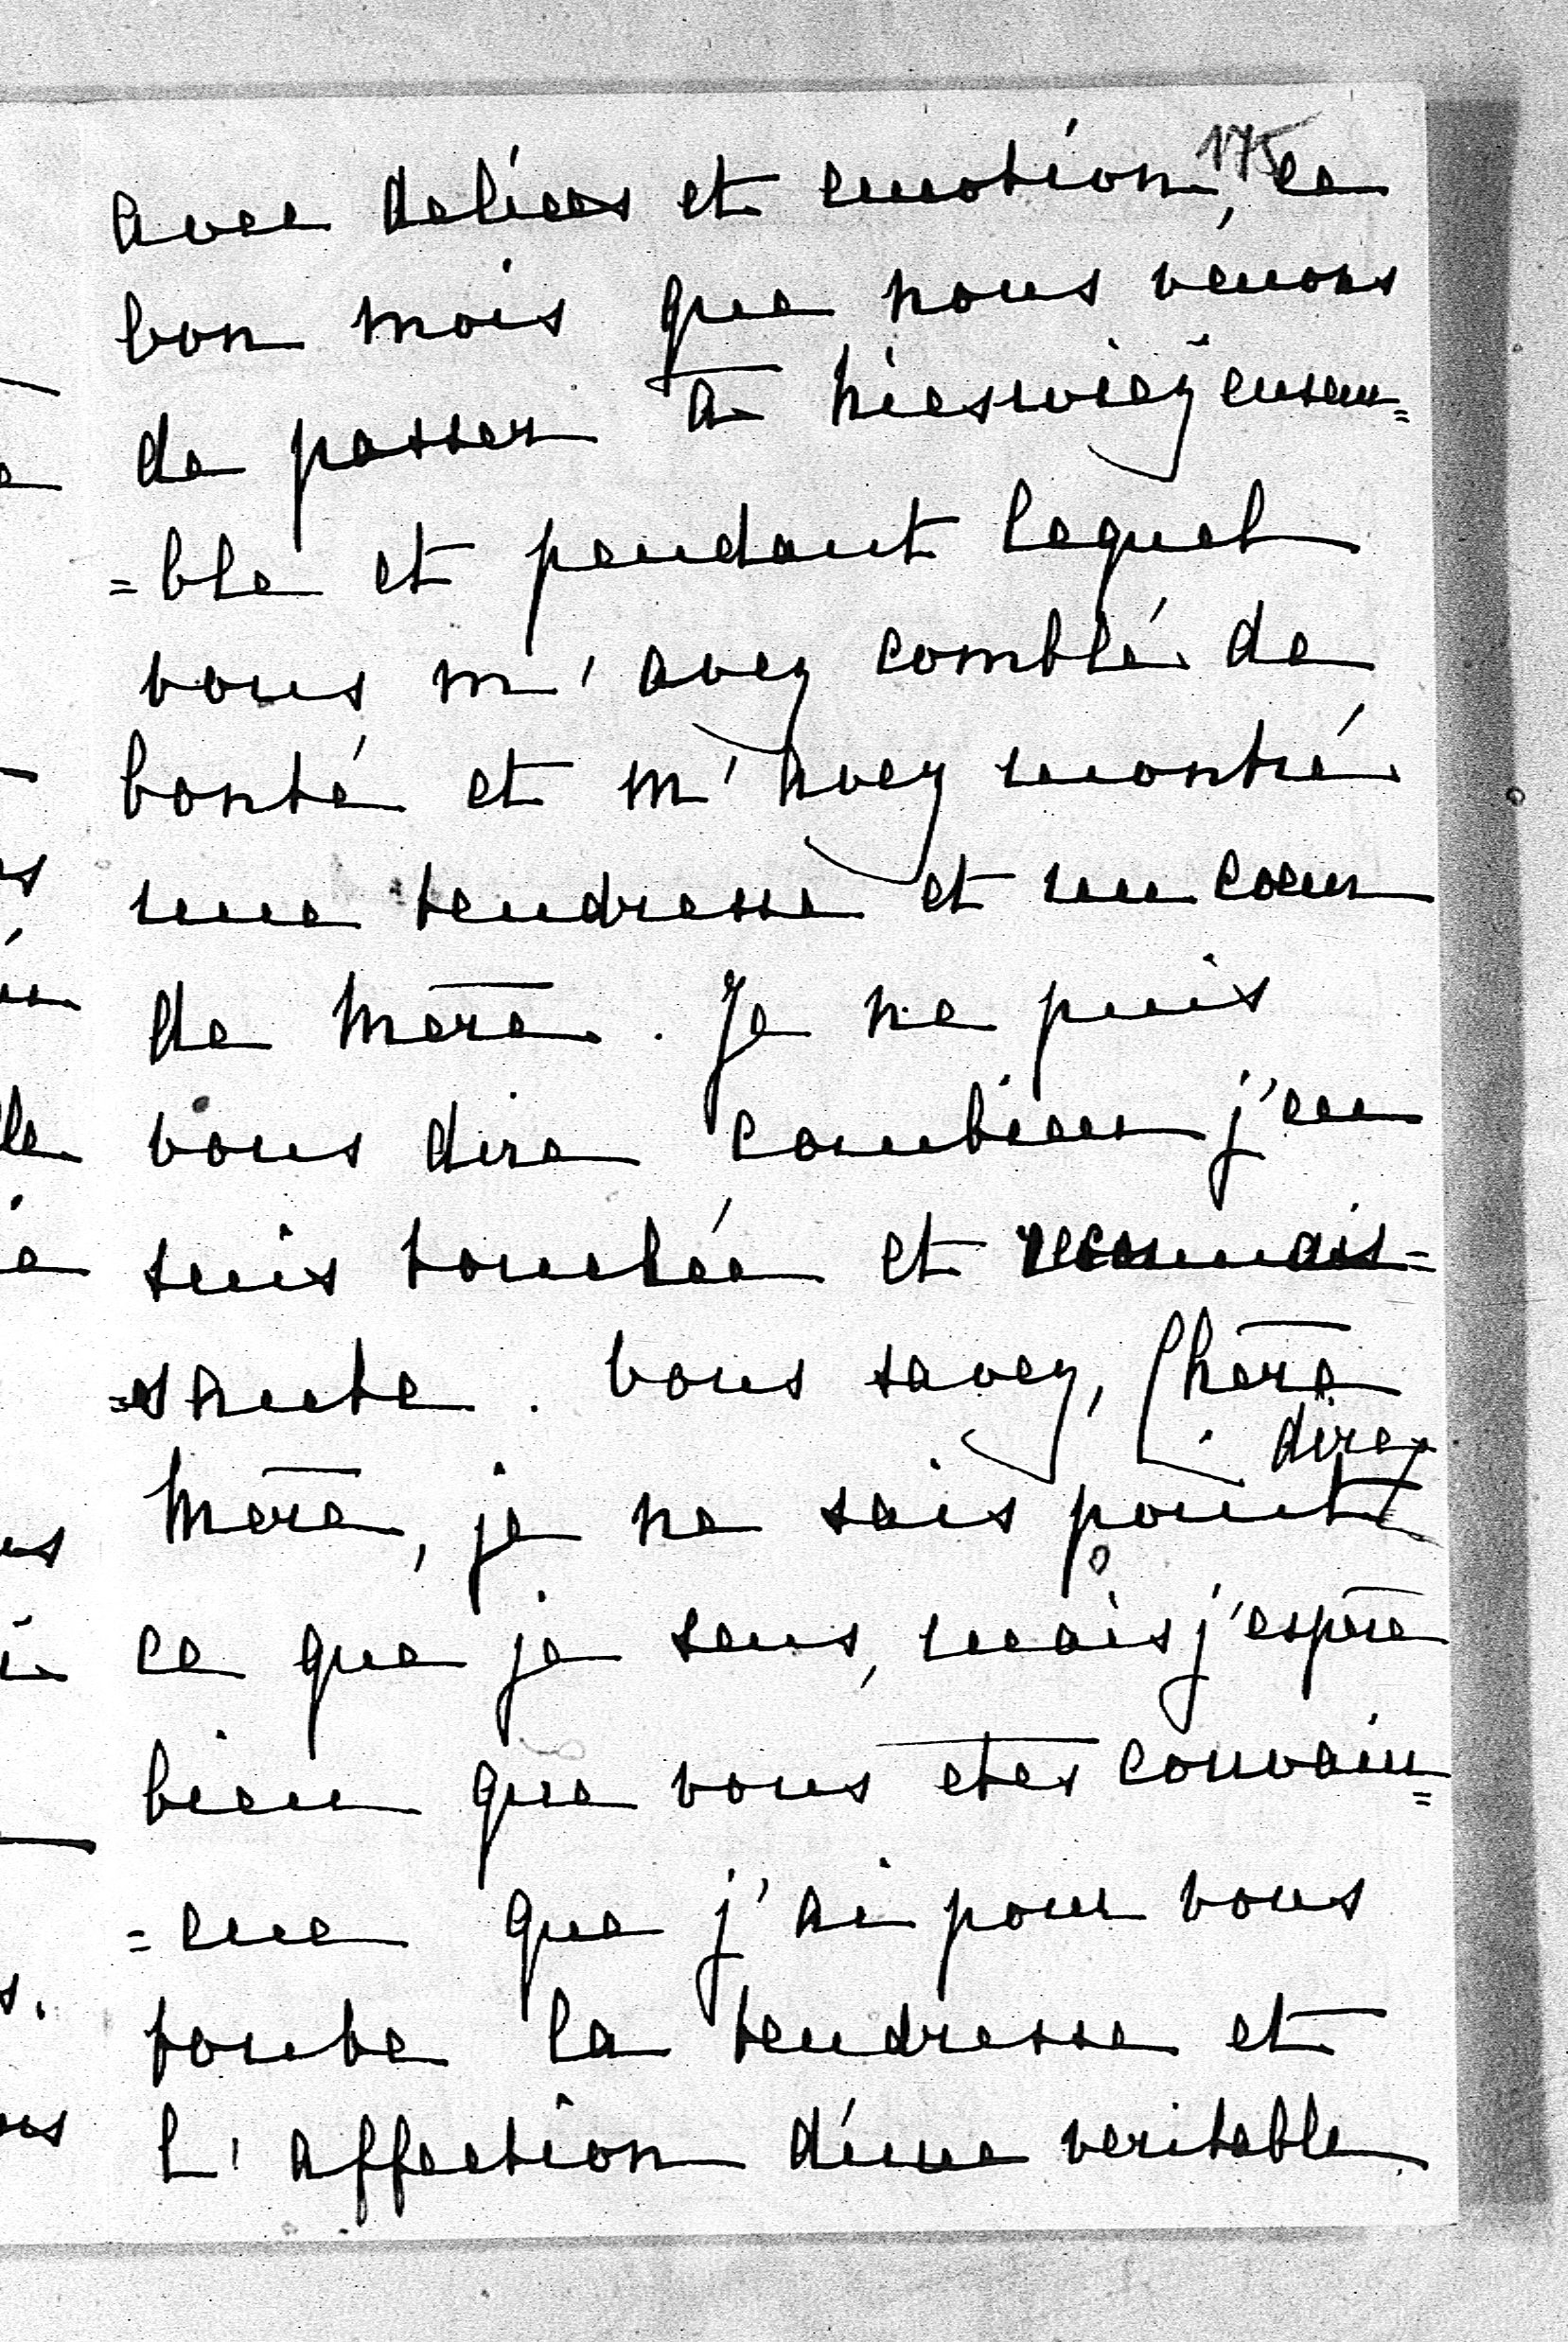 175
avec delices et emotion, ce
bon mois que nous venons
de passer à Nieswiez ensem=
=ble et pendant lequel
vous m'avez comblé de
bonté et m'avez montré
une tendresse et un coeur
de Mère. Je ne puis
vous dire combien j'en
suis touchée et reconnais=
=sante. Vous savez, Chère
dire
Mère, je ne sais point
ce que je sens, mais j'espère
bien que vous etes convain=
=cue que j'ai pour vous
toute la tendresse et
l'affection d'une veritable